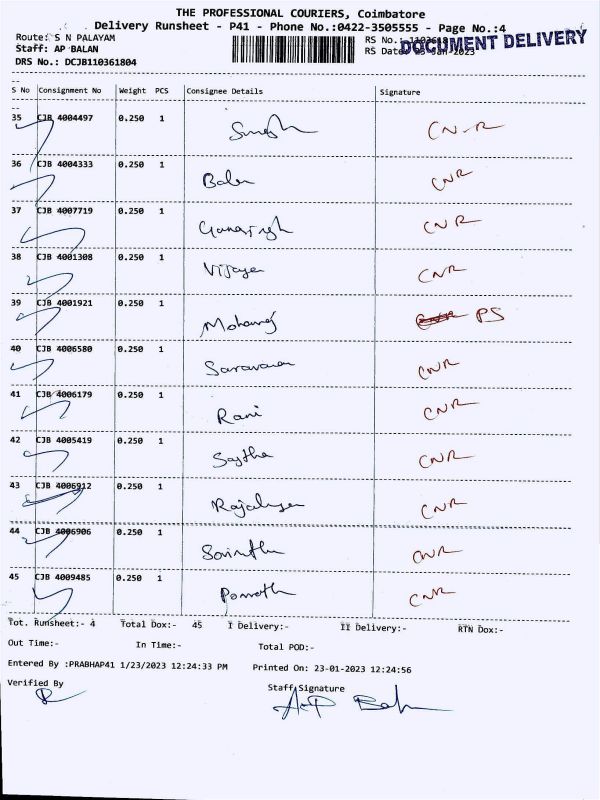 THE PROFESSIONAL COURIERS, Coimbatore
Delivery Runsheet - P41 - Phone No.:0422-3505555 - Page No.:4
Route: S N PALAYAM
RS No.:
DOCUMENT DELIVERY
Staff: AP BALAN
RS Date: 23-Jan-2023
DRS No.: DCJB110361804
S No Consignment No Weight PCS Consignee Details Signature
35 CJB 4004497 0.250 1 CNR
36 CJB 4004333 0.250 1 Babu CNR
37 CJB 4007719 0.250 1 CNR
38 CJB 4001308 0.250 1 Vijaya CNR
39 CJB 4001921 0.250 1 Mohanraj PS
40 CJB 4006580 0.250 1 Saravanan CNR
41 CJB 4006179 0.250 1 Rani CNR
42 CJB 4005419 0.250 1 CNR
43 CJB 4006912 0.250 1 CNR
44 CJB 4006906 0.250 1 CNR
45 CJB 4009485 0.250 1 CNR
Tot. Runsheet:- 4 Total Dox:- 45 I Delivery:- II Delivery:- RTN Dox:-
Out Time:- In Time:- Total POD:-
Entered By :PRABHAP41 1/23/2023 12:24:33 PM Printed On: 23-01-2023 12:24:56
Verified By
Staff Signature